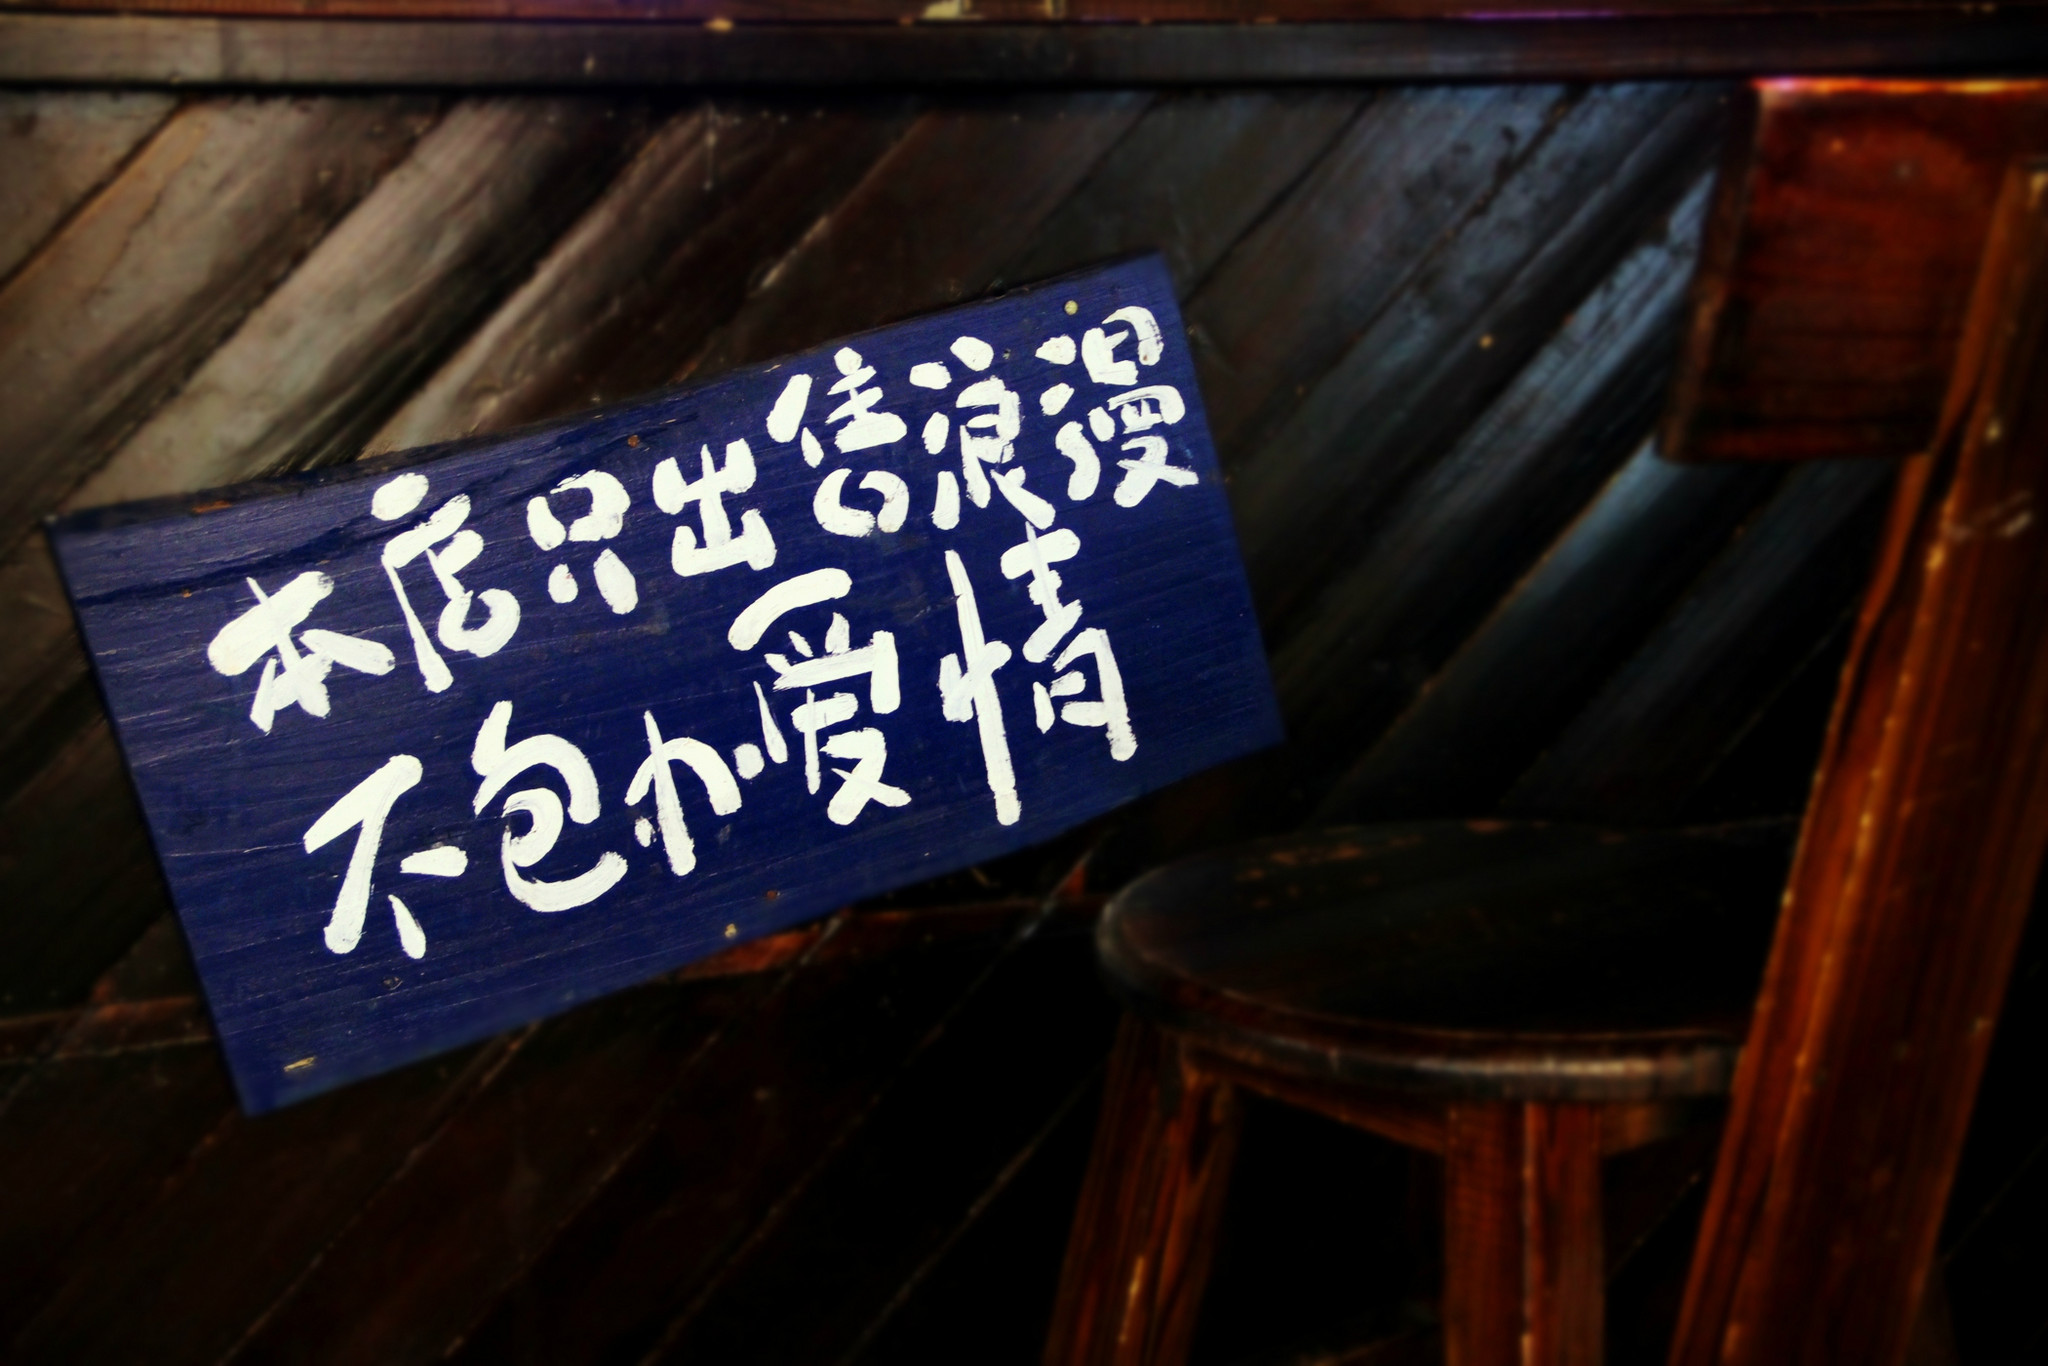 本店只出售浪漫
不包办爱情